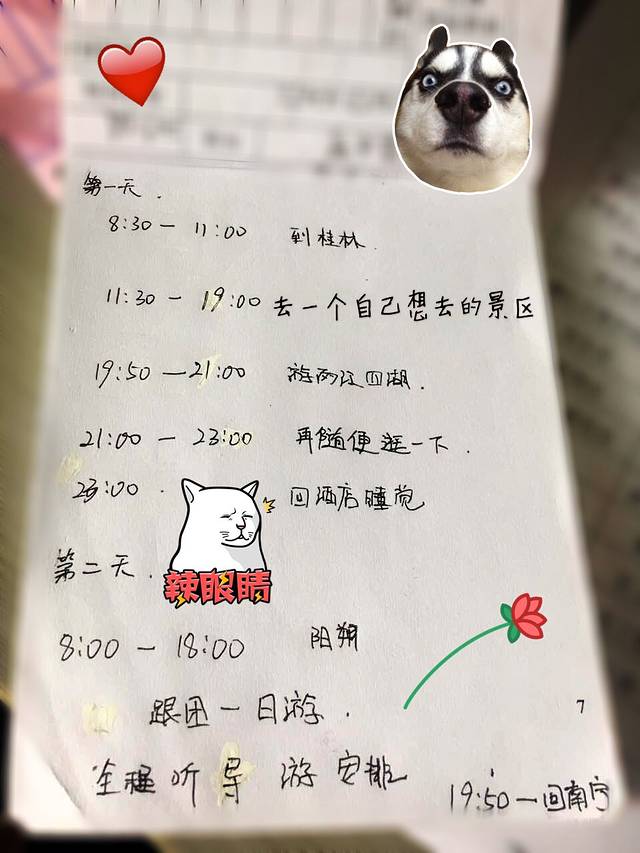 第一天.
8:30 — 11:00 到桂林.
11:30 — 19:00 去一个自己想去的景区
19:50 — 21:00 游两江四湖.
21:00 — 23:00 再随便逛一下.
23:00. 回酒店睡觉
辣眼睛
第二天.
8:00 — 18:00 阳朔
跟团一日游.
7
全程听导游安排
19:50 — 回南宁